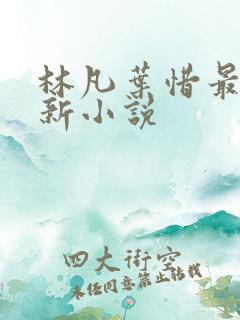 林凡葉惜最
新小說
四大街空
未经同意禁止转载